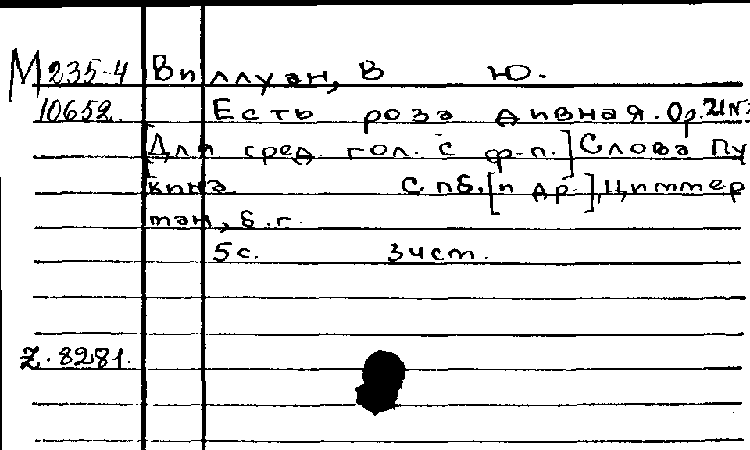 М 235-4 Виллуан, В Ю.
10652. Есть роза дивная. Ор. 21 №3
[Для сред гол. с ф-п.] Слова Пу
кина С пб. [и др.], Циммер
ман, б. г.
5 с. 3 част.
Z. 8281.